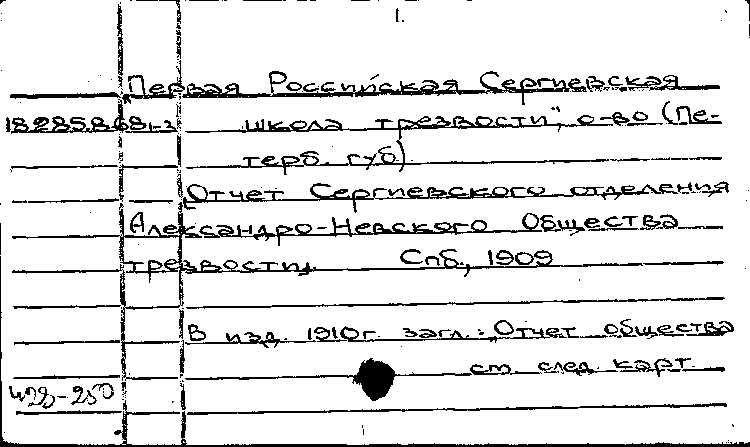 1.
"Первая Российская Сергиевская
школа трезвости", о-во (Пе-
терб. губ).
[Отчет Сергиевского отделения
Александро-Невского Общества
трезвости]. Спб., 1909
В изд. 1910г. загл.: „Отчет общества
см. след. карт.
428-250